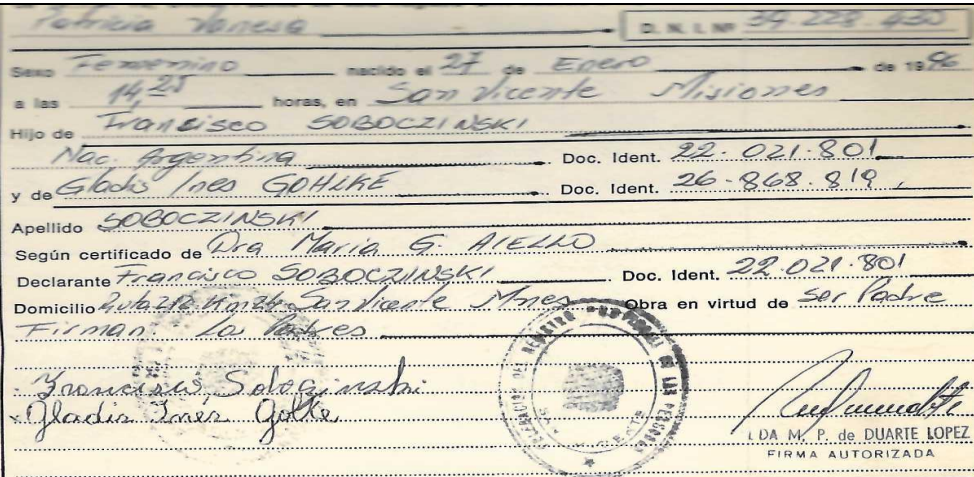 Patricia Vanesa D.N.I. Nº 39.228.430
Sexo Femenino nacido el 27 de Enero de 1996
a las 14,25 horas, en San Vicente Misiones
Hijo de Francisco SOBOCZINSKI
Nac. Argentina Doc. Ident. 22.021.801
y de Gladis Ines GOHLKE Doc. Ident. 26.868.819
Apellido SOBOCZINSKI
Según certificado de Dra Maria G. AIELLO
Declarante Francisco SOBOCZINSKI Doc. Ident. 22.021.801
Domicilio San Vicente Mnes Obra en virtud de ser Padre
Firman: Los Padres
Gladis Ines Golke
DELEGACION DEL REGISTRO DE LAS PERSONAS
M. P. de DUARTE LOPEZ
FIRMA AUTORIZADA